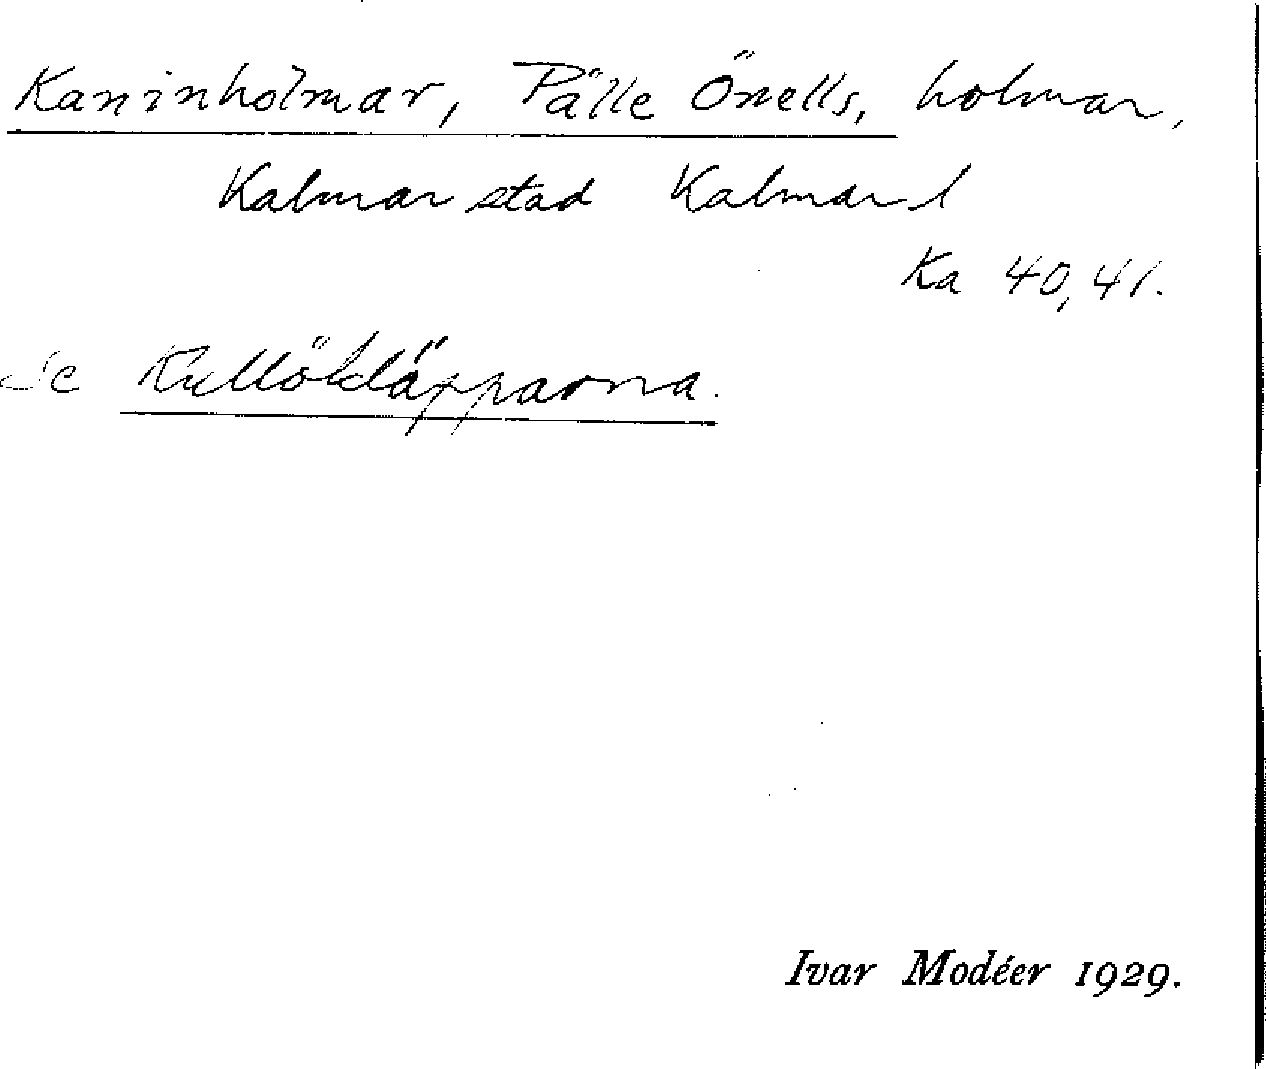 Kaninholmar, Pälle Önells, holmar,
Kalmar stad Kalmar l
Ka 40,41.
Se Kullökläpparna.
Ivar Modéer 1929.